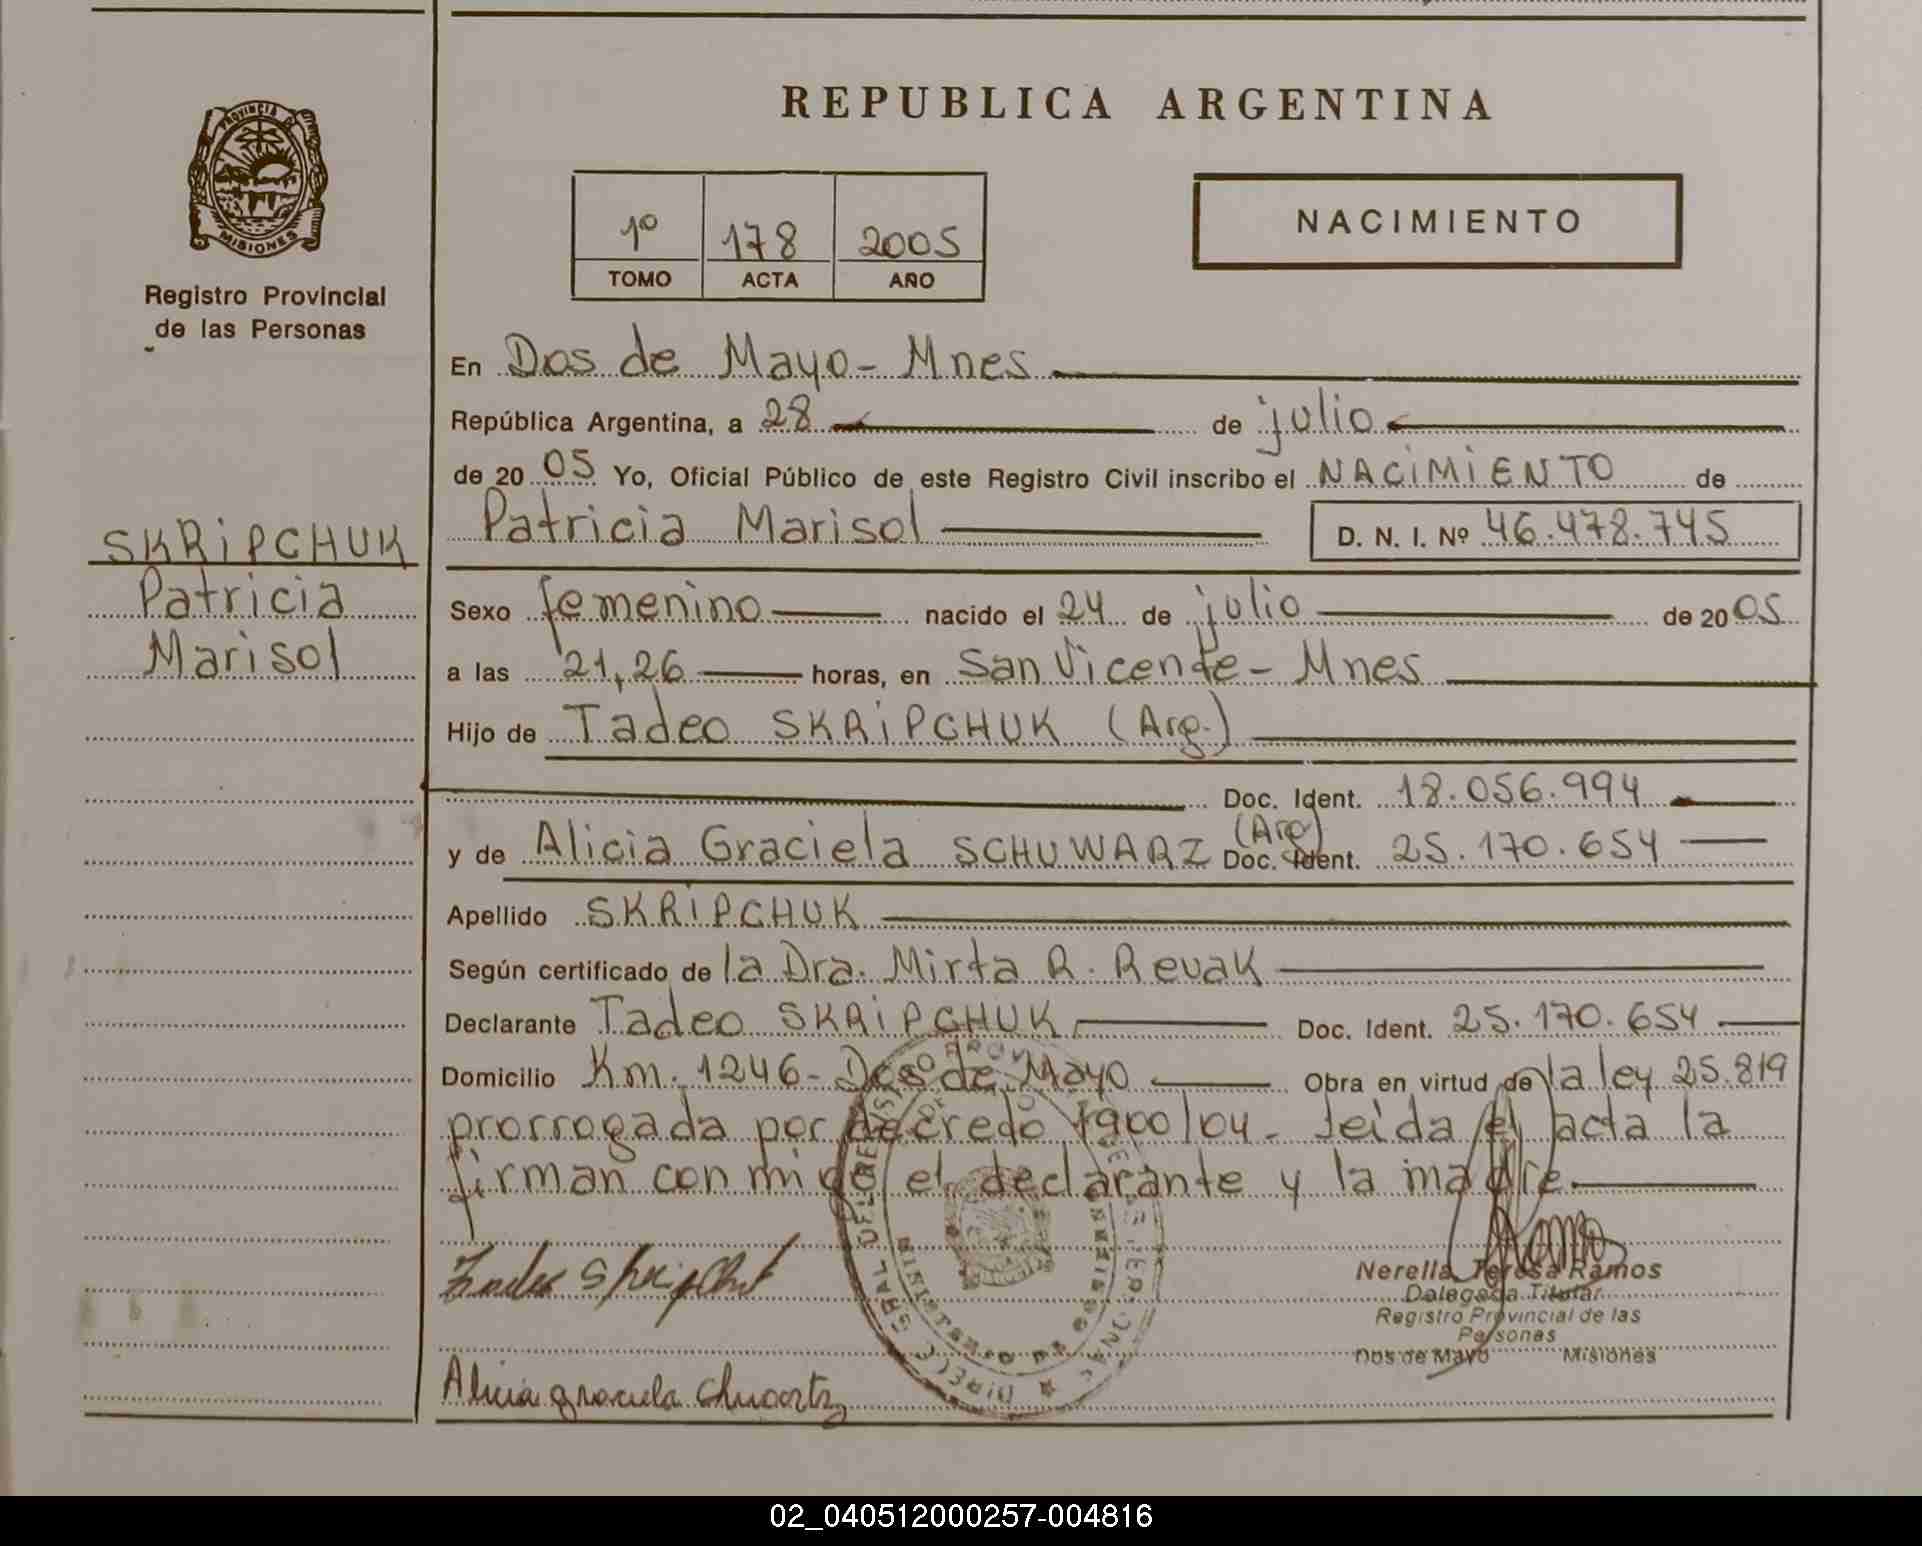 REPUBLICA ARGENTINA
PROVINCIA DE
MISIONES
Registro Provincial
de las Personas
1º 178 2005
TOMO ACTA AÑO
NACIMIENTO
En Dos de Mayo - Mnes
República Argentina, a 28 de julio
de 20 05 Yo, Oficial Público de este Registro Civil inscribo el NACIMIENTO de
Patricia Marisol D. N. I. Nº 46.478.745
SKRIPCHUK
Patricia
Marisol
Sexo femenino nacido el 24 de julio de 20 05
a las 21,26 horas, en San Vicente - Mnes
Hijo de Tadeo SKRIPCHUK (Arg.)
Doc. Ident. 18.056.994
y de Alicia Graciela SCHUWARZ (Arg) Doc. Ident. 25.170.654
Apellido SKRIPCHUK
Según certificado de la Dra. Mirta R. Revak
Declarante Tadeo SKRIPCHUK Doc. Ident. 25.170.654
Domicilio Km. 1246 - Dos de Mayo Obra en virtud de la ley 25.819
prorrogada por decreto 1900/04 - leida el acta la
firman con migo el declarante y la madre.
Nerella Teresa Ramos
Delegada Titular
Registro Provincial de las
Personas
Dos de Mayo Misiones
Alicia graciela Chuartz
02_040512000257-004816